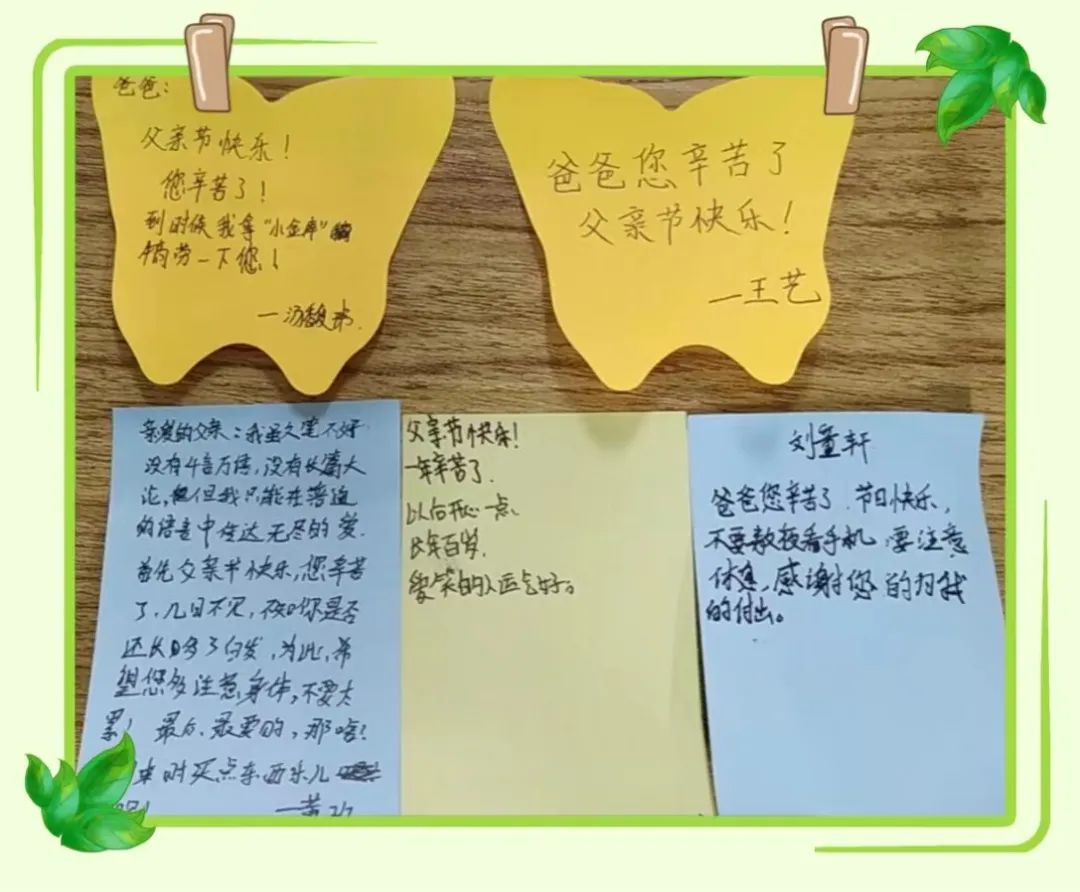 爸爸：
父亲节快乐！
您辛苦了！
到时候我拿“小金库”
犒劳一下您！
爸爸您辛苦了
父亲节快乐！
—王艺
亲爱的父亲：我虽文笔不好
没有千言万语，没有长篇大
论，但我只能在落造
的语言中传达无尽的爱.
首先父亲节快乐，您辛苦
了，几日不见，不知你是否
还长多了白发，为此，希
望您多注意身体，不要太
累！最后、最要的，那啥！
来时买点东西
父亲节快乐！
一年辛苦了.
以后开心一点.
长年百岁.
爱笑的人运气好。
刘童轩
爸爸您辛苦了.节日快乐，
不要熬夜看手机 要注意
休息，感谢您的为我
的付出。